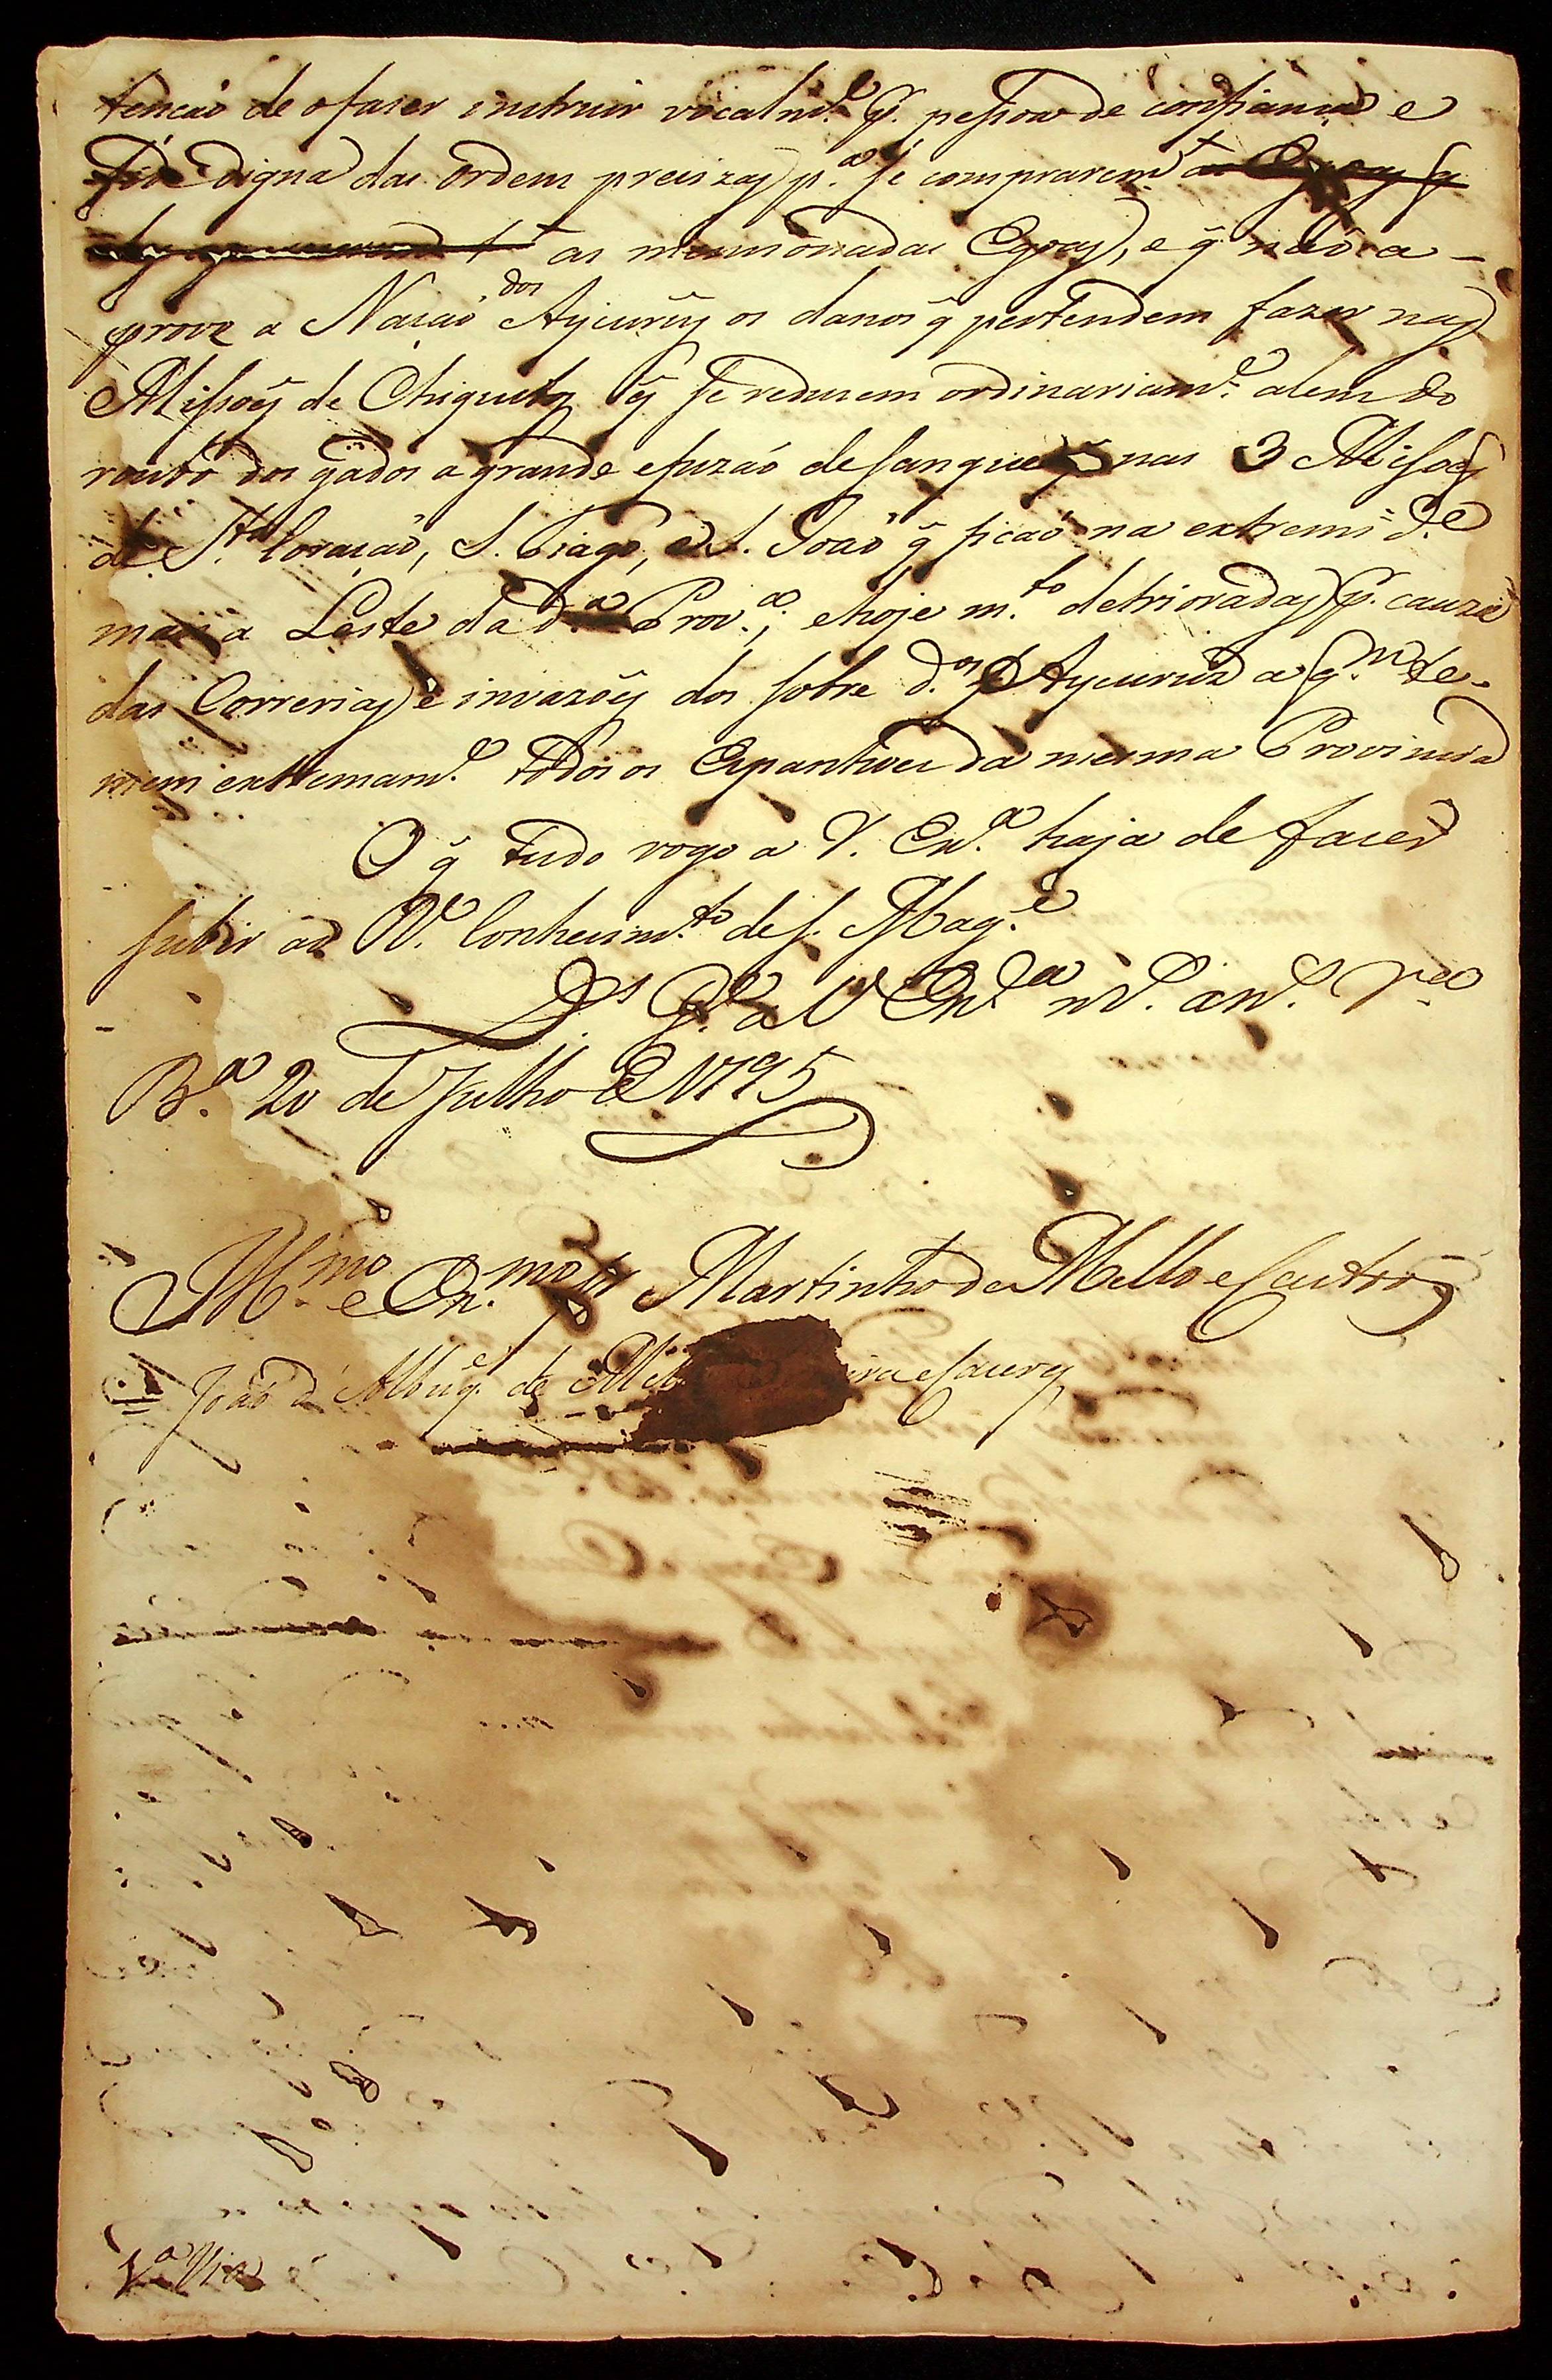 tencaõ de o faser instruir vocalm.e p. pessoa de confiança e
fide digna das ordem precizas p.a se comprarem
as mencionadas Egoas, e q̃ naõ a-
prove a Nacaõ dos Aycurús os danos q̃ pertendem fazer nas
Missoẽs de Chiquitos q̃ se reduzem ordinariam.e alem do
roubo dos gados a grande efuzaõ de sangue nas 3 Missoẽs
de S.to Coracaõ, S. Tiago, e S. Joaõ q̃ ficaõ na extremid.e
mais a Leste da d.a Prov.a, e hoje m.to detrioradas p. cauza
das Correrias e invazoẽs dos sobre d.os Aycurús a q.m te-
mem extremam.e todos os Espanhoes da mesma Provincia
O q̃ tudo rogo a V. Ex.a haja de faser
subir ao R.l Conhecim.to de S. Mag.e
D.s G.e a V Ex.a m.s an.s V.a
B.a 20 de Julho de 1795
Ill.mo e Ex.mo Sr Martinho de Mello e Castro
Joaõ d' Albuq.e de Mel ira e Caceres
1.a Via